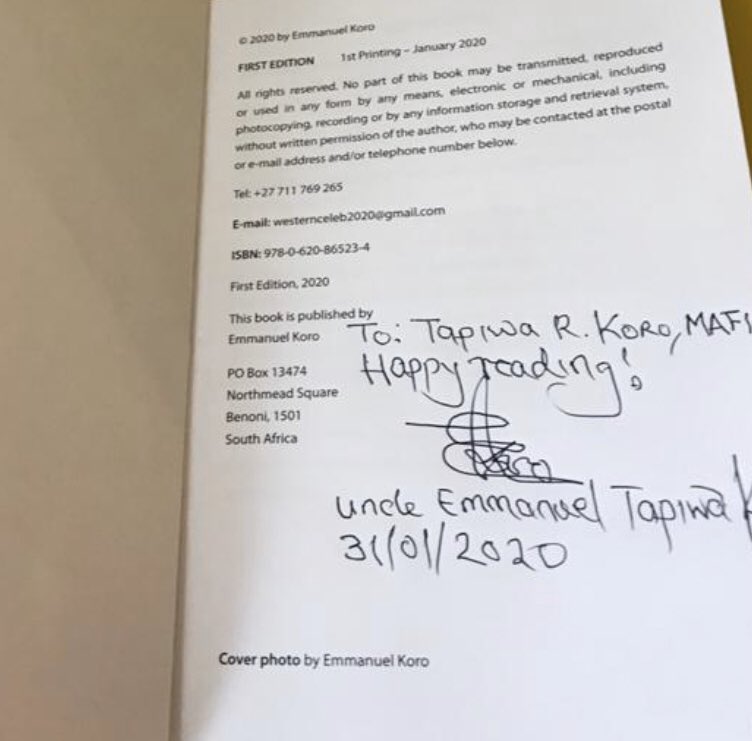 © 2020 by Emmanuel Koro
FIRST EDITION 1st Printing – January 2020
All rights reserved. No part of this book may be transmitted, reproduced
or used in any form by any means, electronic or mechanical, including
photocopying, recording or by any information storage and retrieval system,
without written permission of the author, who may be contacted at the postal
or e-mail address and/or telephone number below.
Tel: +27 711 769 265
E-mail: westernceleb2020@gmail.com
ISBN: 978-0-620-86523-4
First Edition, 2020
This book is published by
Emmanuel Koro
PO Box 13474
Northmead Square
Benoni, 1501
South Africa
To: Tapiwa R. Koro,
Happy reading!
uncle Emmanuel Tapiwa
31/01/2020
Cover photo by Emmanuel Koro